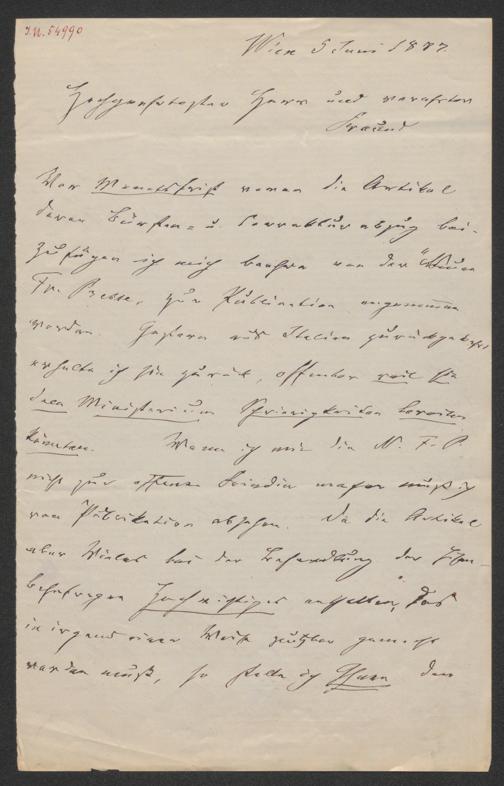 J.N. 54990
Wien 5 Juni 1877.
Hochgeehrtester Herr und verehrter
Freund
Vor Monatsfrist waren die Artikel
deren Bürsten- u. Correkturabzug bei-
zufügen ich mich beehre von der "Neuen
Fr. Presse, zur Publication angenommen
worden. Gestern aus Italien zurückgekehrt
erhalte ich sie zurück, offenbar weil sie
dem Ministerium Schwierigkeiten bereiten
könnten. Wenn ich mir die N. F. P.
nicht zur offenen Feindin machen muß ich
von Publikation absehen. Da die Artikel
aber Vieles bei der Behandlung der
befragen Hochwichtiges enthalten, das
in irgend einer Weise nutzbar gemacht
werden muß, so stelle ich Ihnen den